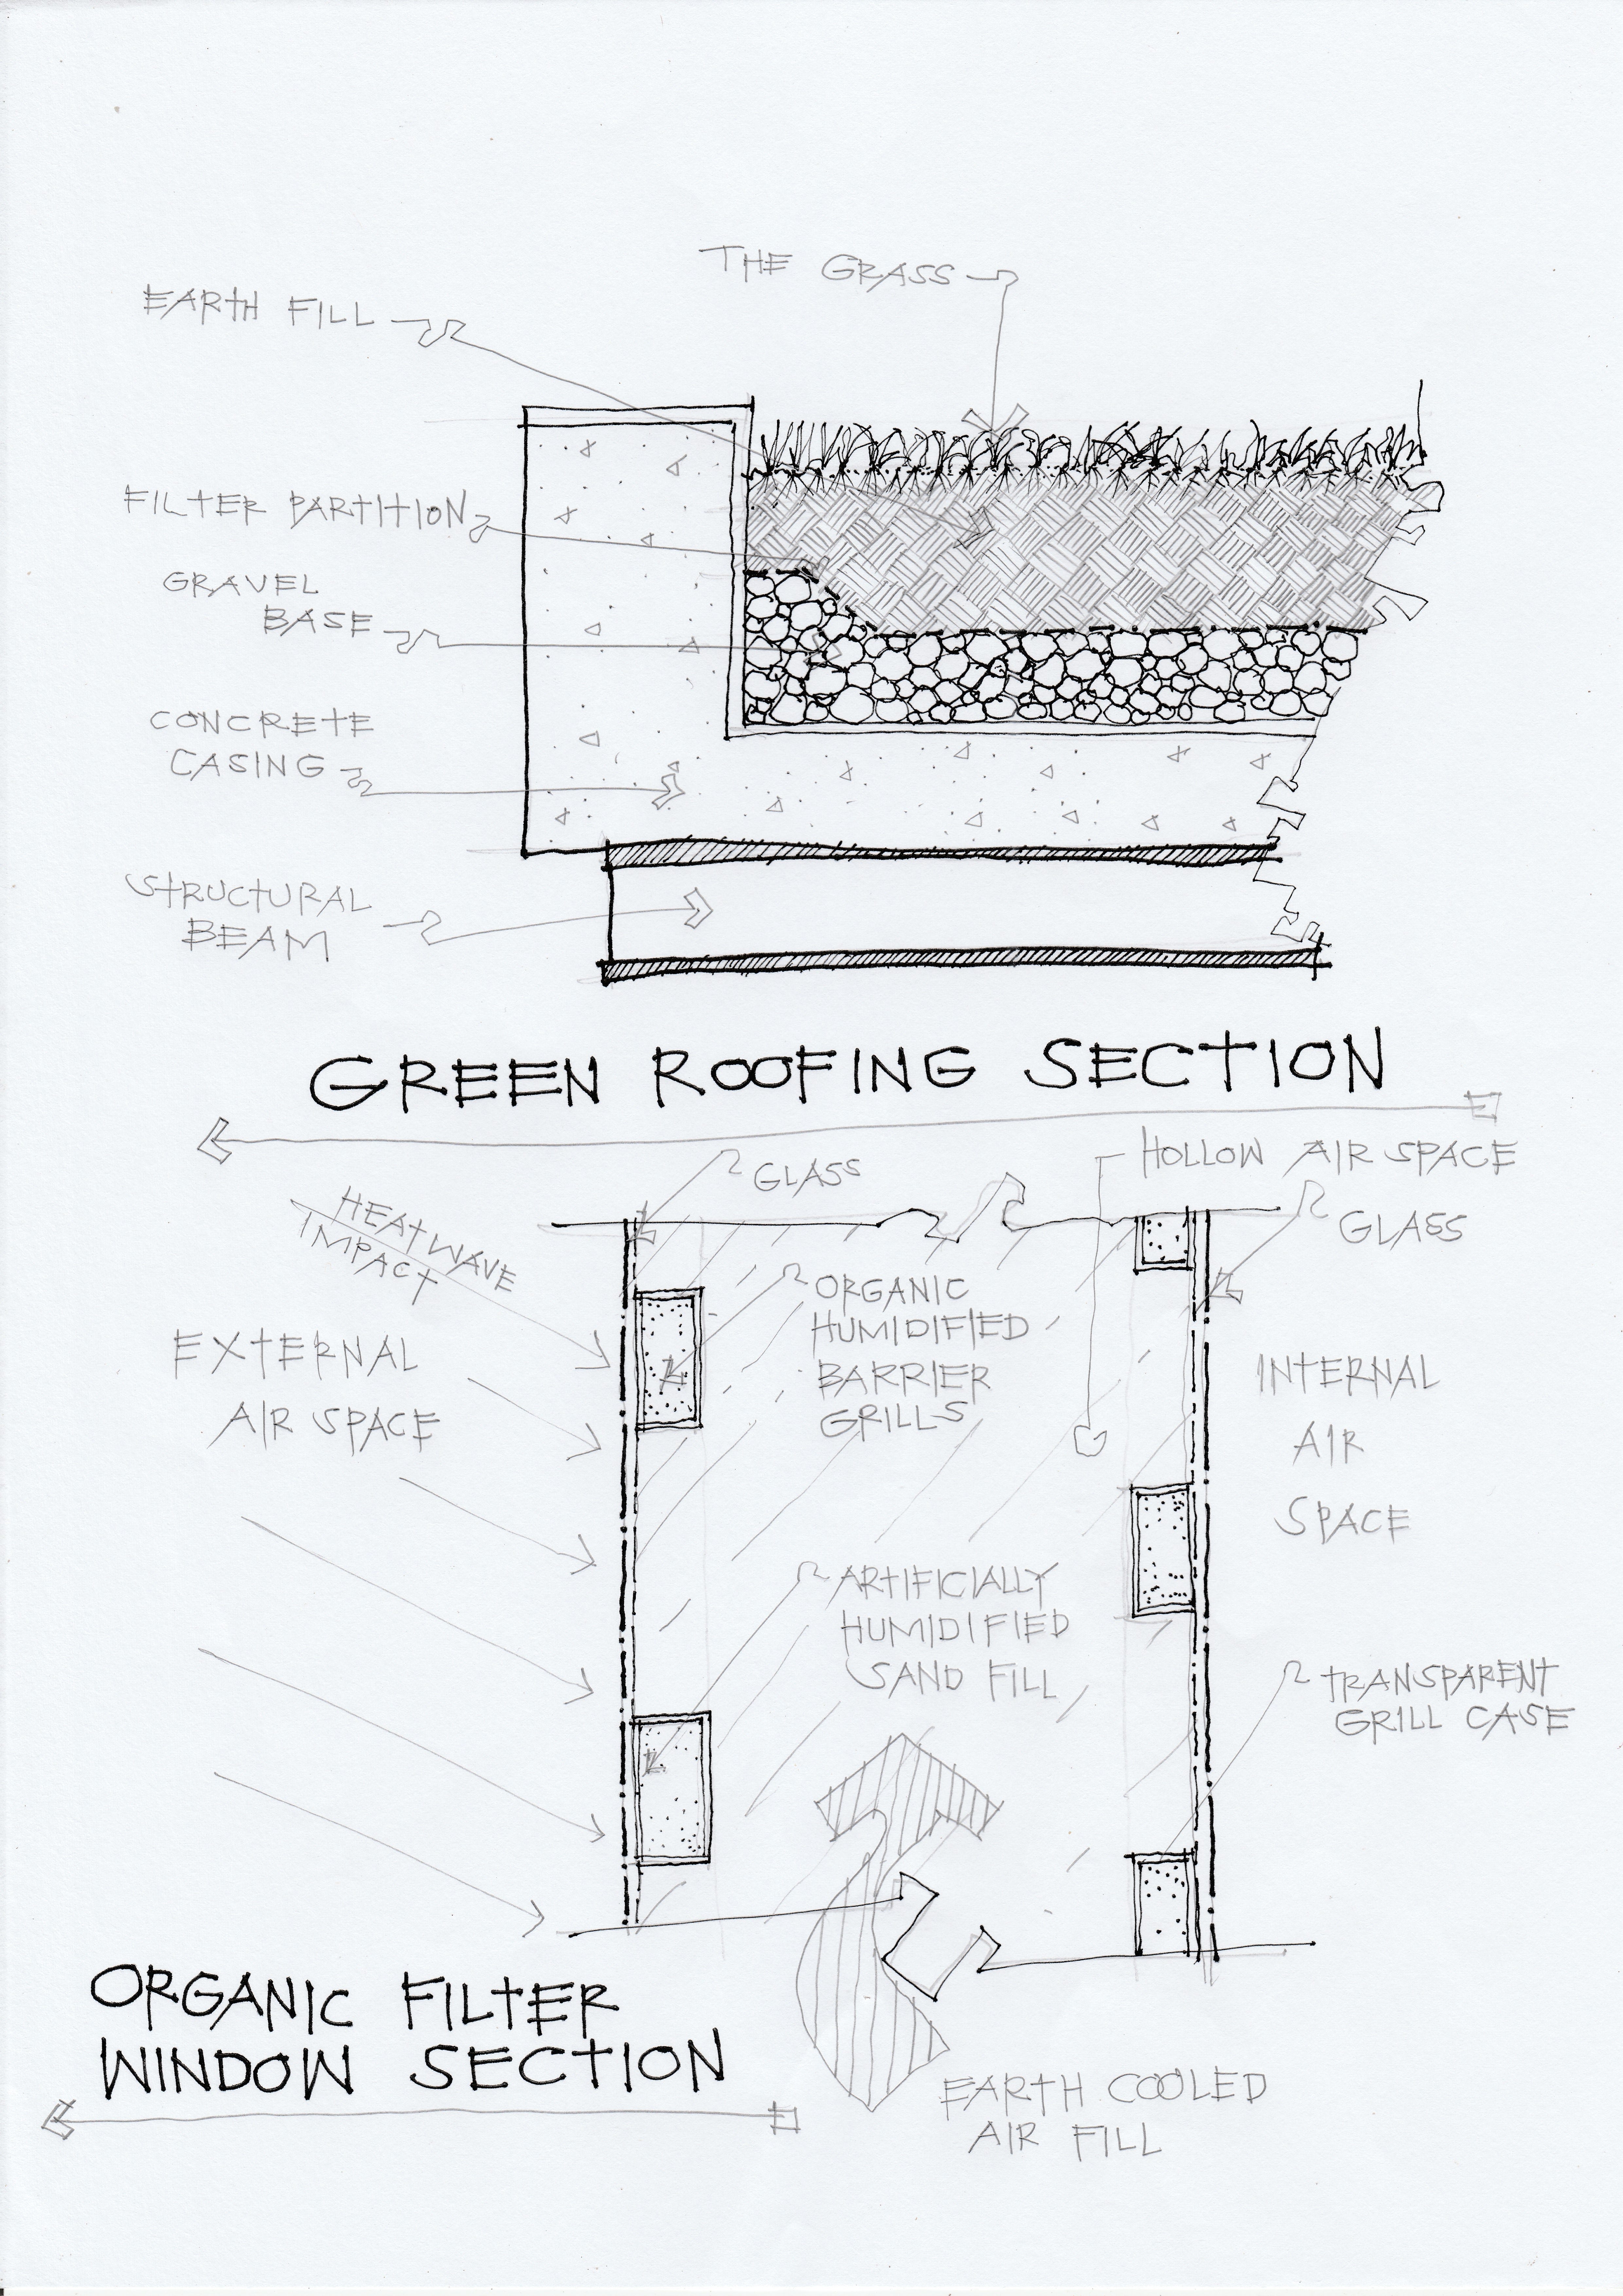 THE GRASS
EARTH FILL
FILTER PARTITION
GRAVEL
BASE
CONCRETE
CASING
STRUCTURAL
BEAM
GREEN ROOFING SECTION
GLASS
HOLLOW AIR SPACE
GLASS
HEAT WAVE
IMPACT
EXTERNAL
AIR SPACE
ORGANIC
HUMIDIFIED
BARRIER
GRILLS
INTERNAL
AIR
SPACE
ARTIFICIALLY
HUMIDIFIED
SAND FILL
TRANSPARENT
GRILL CASE
ORGANIC FILTER
WINDOW SECTION
EARTH COOLED
AIR FILL